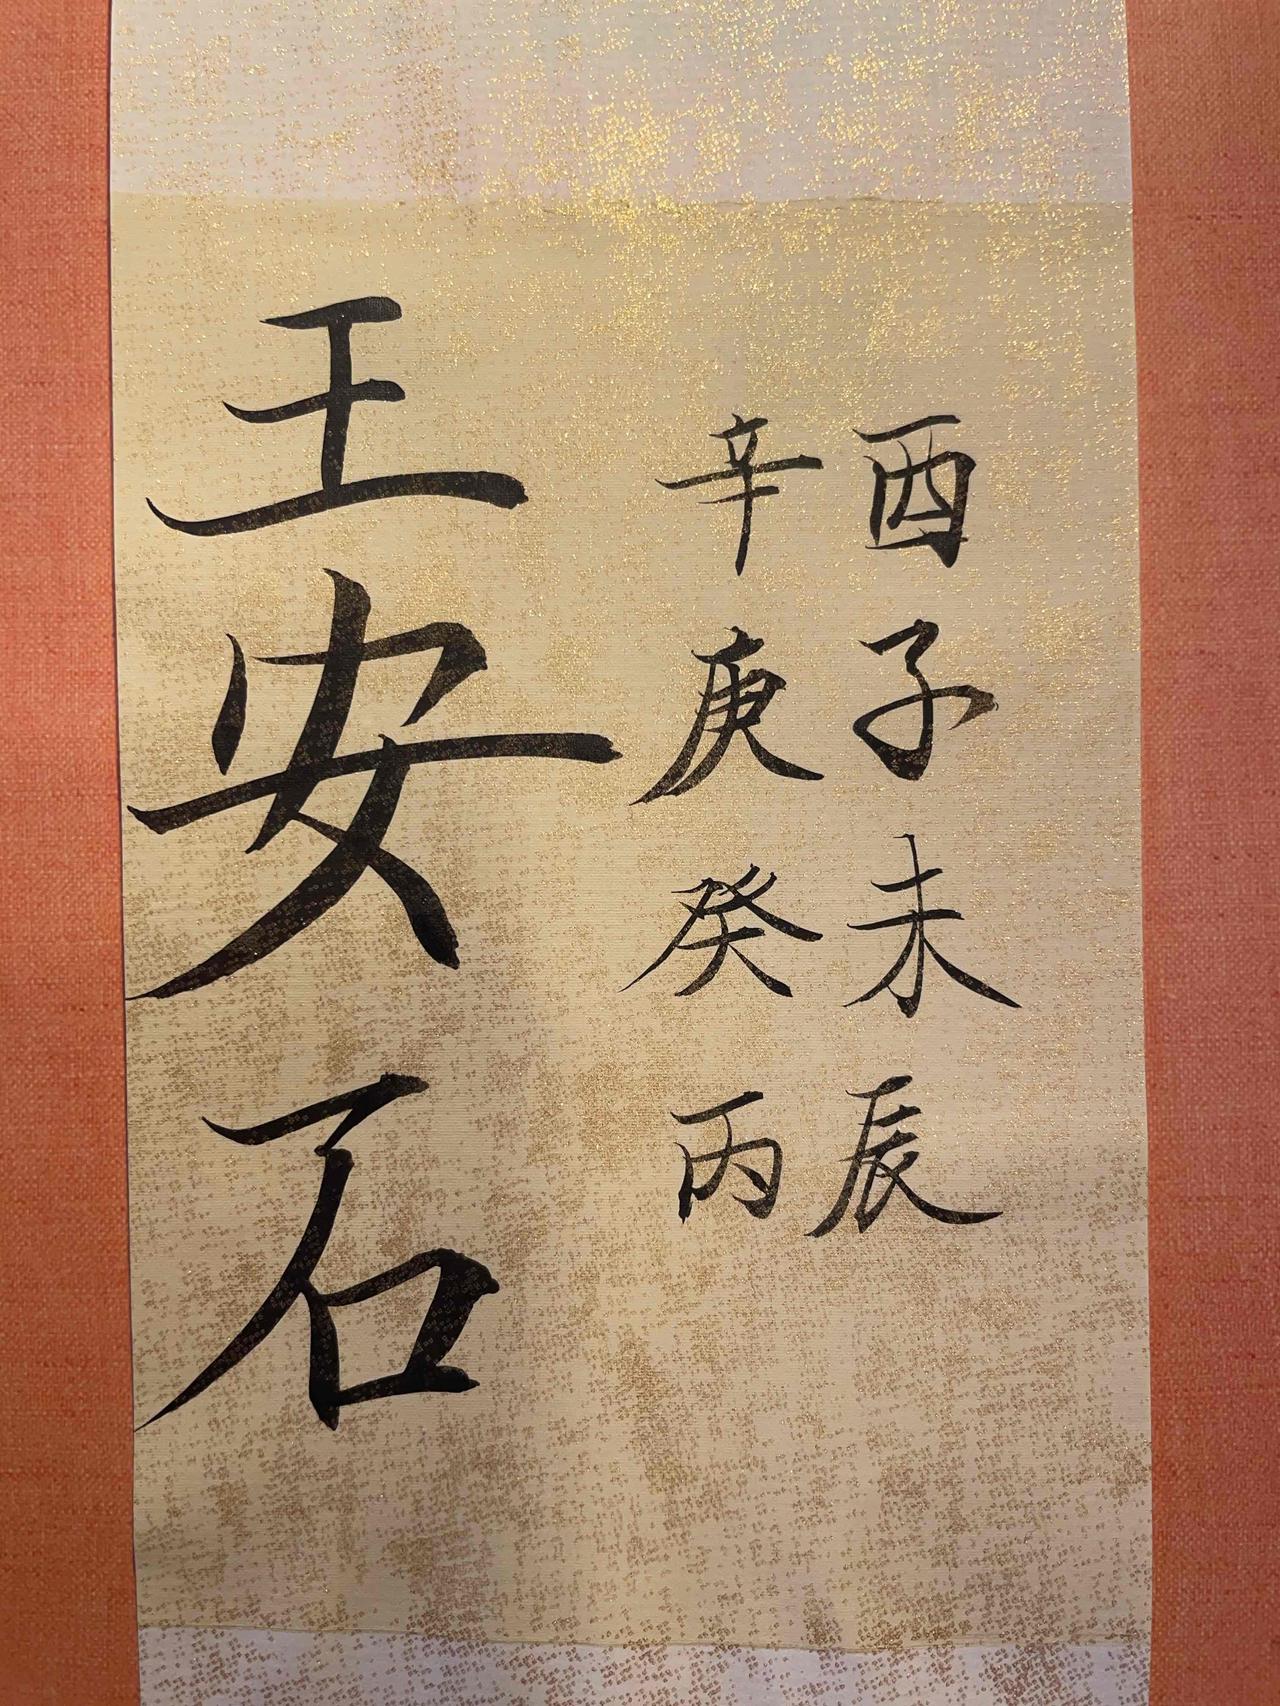 酉子未辰
辛庚癸丙
王安石